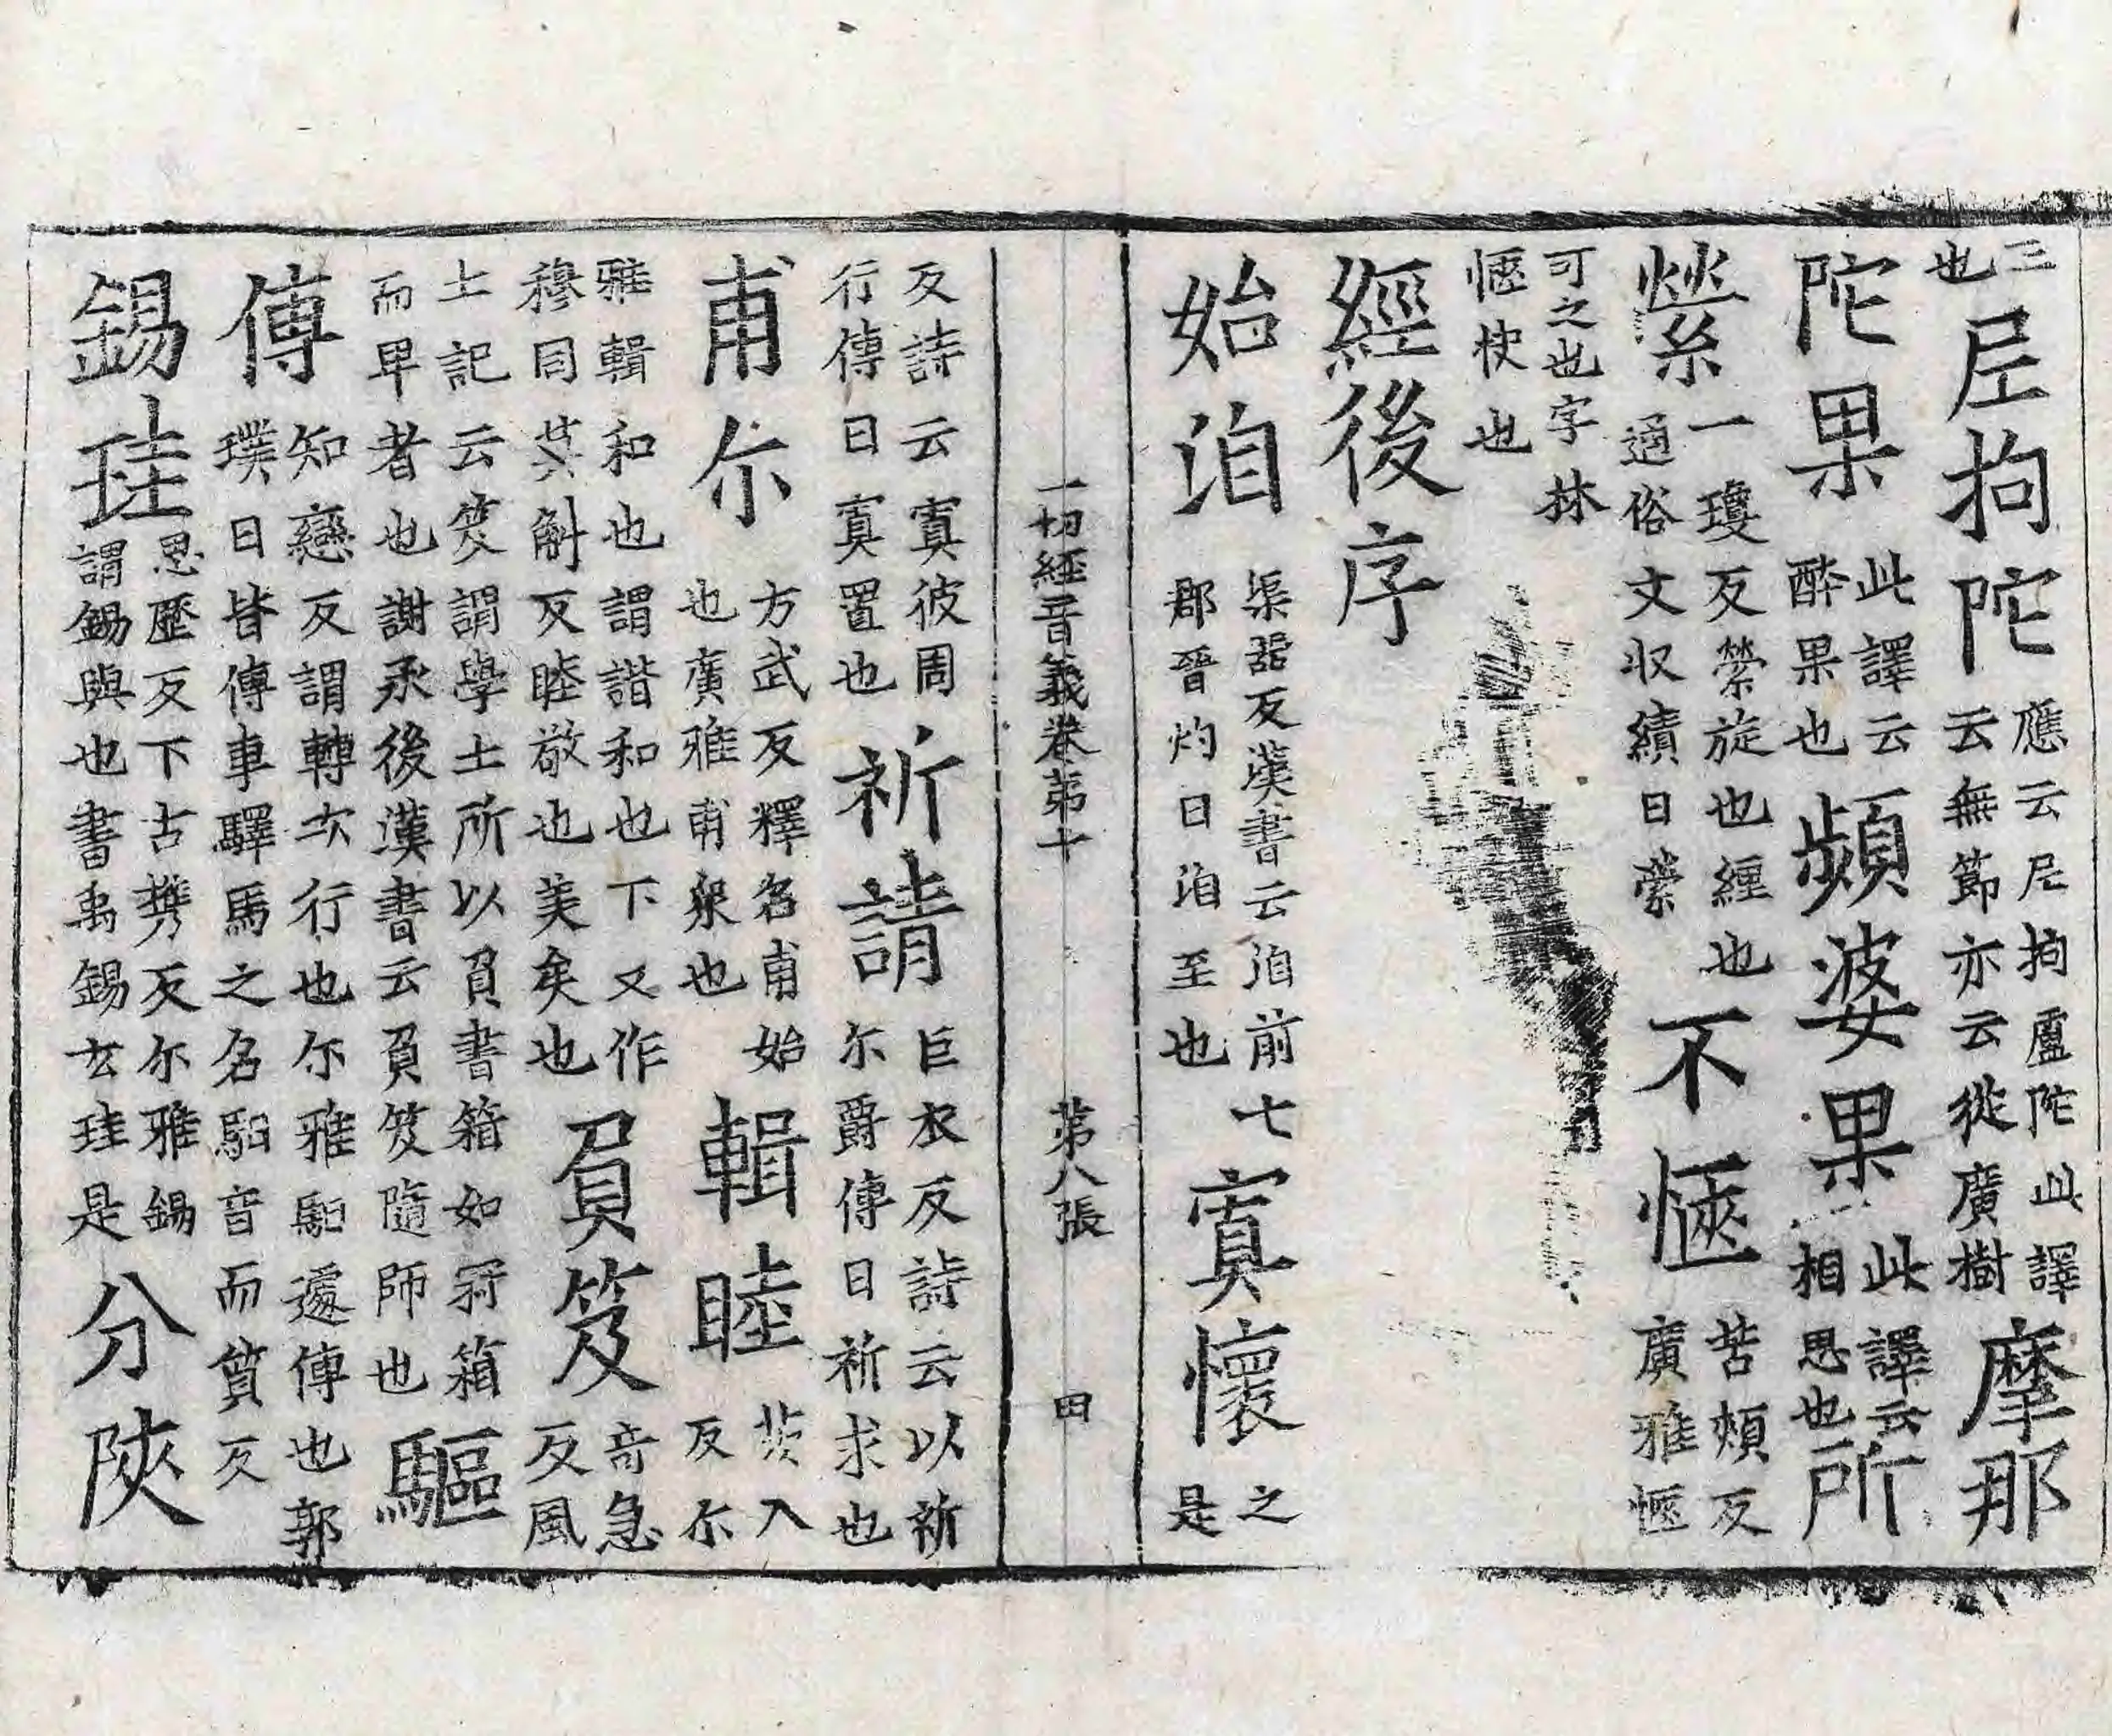 三也尼拘陀應云尼拘盧陀此譯云無節亦云從廣樹摩那
陀果此譯云醉果也頻婆果此譯云相思也所
縈一瓊反縈旋也緾也通俗文収績曰縈不㥦苦頰反廣雅㥦
可之也字林㥦快也
經後序
始洎渠器反漢書云洎前七郡晉灼曰洎至也寘懷之是
一切經音義卷第十 第八張 四
反詩云寘彼周行傳曰寘置也祈請巨衣反詩云以祈尒爵傳曰祈求也
甫尒方武反釋名甫始也廣雅甫衆也輯睦茨入反尒
雅輯和也謂諧和也下又作穆同莫斛反睦敬也美矣也負笈奇急反風
土記云笈謂學士所以負書箱如冠箱而卑者也謝承後漢書云負笈隨師也驅
傳知戀反謂轉次行也尒雅馹遽傳也郭璞曰皆傳車驛馬之名馹音而質反
錫珪思歷反下古攜反尒雅錫謂錫與也書禹錫玄珪是分陝